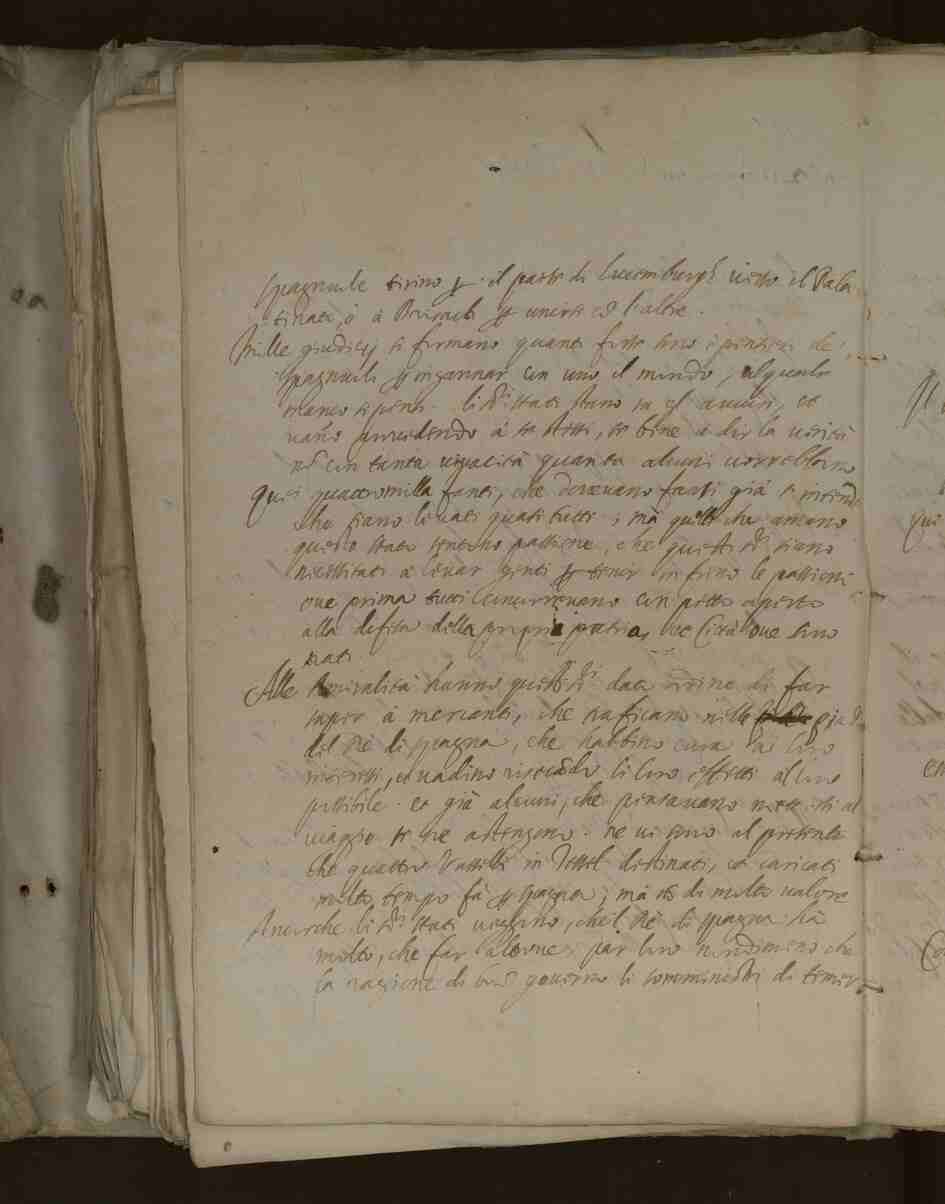 Spagnuole tirino per il paese di Lucemburgh verso il Pala
tinato, ò à Brisach per unirsi con l'altre.
Mille giudicij si formano quanti forse sono i pensieri de
Spagnuoli per ingannar con uno il mondo, al quale
manco si pensi. li Sri Stati stano su gl'avvisi, et
vano provedendo à se stessi, se bene à dir la verità
nò con tanta vivacità quanta alcuni vorrebbono
Quei quattromilla fanti, che dovevano farsi già s'intende
che siano levati quasi tutti; mà quelli che amano
questo stato sentono passione, che questi Sri siano
necessitati à levar genti per tenir in freno le passioni
ove prima tutti concorrevano con petto aperto
alla difesa della propria patria, ove sono
nati.
Alle Amiralità hanno questi Sri dato ordine di far
saper à mercanti, che traficano nelle
del Rè di Spagna, che habbino cura à loro
interessi, et vadino li loro effetti al
possibile. et già alcuni, che pensavano mettersi al
viaggio se ne astengono. ne vi sono al presente
che quattro Vasselli in Tessel destinati, et caricati
molto tempo fà per Spagna; mà nò di molto valore
Ancorche li Sri Stati veggino, che'l Rè di Spagna hà
molto, che far altrove; par loro nondimeno che
la ragione di buon governo li somministri di temer